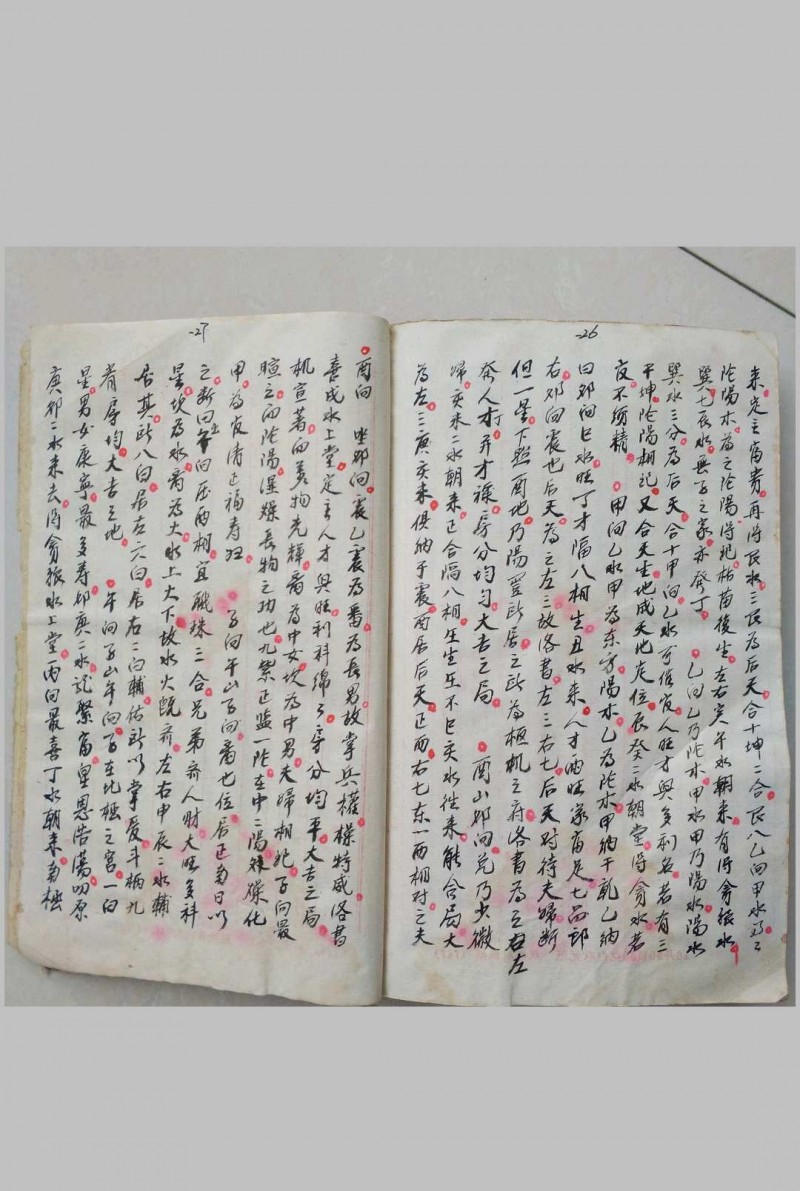 -26
来定主富贵再得艮水三艮為后天合十坤二合艮八乙向甲水為之
陰陽木為之陰陽得配枯苗復生左右亥午水朝来有得貪狼水
巽七辰水無子之家亦發丁 乙向乙乃陰木甲水甲乃陽水陽水
巽水三分為后天合十甲向乙水可催官人旺才興多利名若有三
干坤陰陽相配又合天生地成天地定位辰癸二水朝堂得貪水若
夜不須精 甲向乙水甲為东方陽木乙為陰木甲納干乾乙納
曰卯向巳水旺丁才隔八相生丑水来人才两旺家富足七品郎
右卯向震也后天為之左三故洛書左三右七后天対待夫婦断
但一星下照酉地乃陽置於居之於為樞机之府洛書為之右左
發人才丁并才祿房分均匀大吉之局 酉山卯向兑乃少微
婦亥未二水朝来正合隔八相生生不巳亥水往来能合局大
為左三庚亥未俱納于震酉居后天正西右七东一西相対之夫
-27
酉向 坐卯向震乙震為番為長男故掌兵權操特威洛書
喜成水上堂定主人才興旺利科綿々房分均平大吉之局
机宣著的萬物光輝離為中女坎為中男夫婦相配子向最
暄之的陰陽濕燥長物之功也九紫正监一陰在中二陽燥化
甲為官清正福寿归 子向午山子向離也位居正南日以
之断曰坐午向压两相宜联珠三合兄弟齐人财大旺多科
星坎為水离為火水上火下故水火既济左右申辰二水輔
居其於八白居左六白居右二向輔佑所以掌爱斗柄九
者房均大吉之地 午向子山午向子在北極之宫一白
星男女康寧最多寿卯庚二水龍聚富皇恩浩蕩四原
庚卯二水来去得貪狼水上堂丙向最喜丁水朝来南極